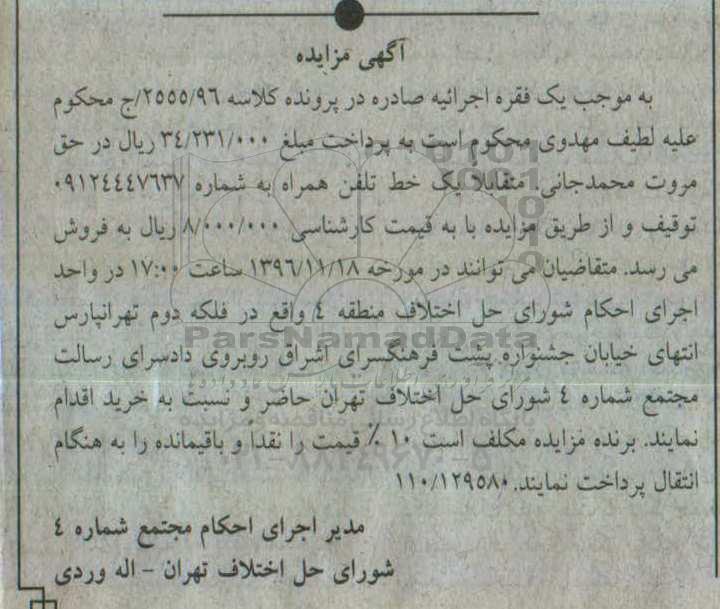 آگهی مزایده
به موجب یک فقره اجرائیه صادره در پرونده کلاسه ۲۵۵۵/۹۶/ج محکوم
علیه لطیف مهدوی محکوم است به پرداخت مبلغ ۳٤/۲۳۱/۰۰۰ ریال در حق
مروت محمدجانی. متقابلا یک خط تلفن همراه به شماره ۰۹۱۲٤٤٤۷٦۳۷
توقیف و از طریق مزایده با به قیمت کارشناسی ۸/۰۰۰/۰۰۰ ریال به فروش
می رسد. متقاضیان می توانند در مورخه ۱۳۹٦/۱۱/۱۸ ساعت ۱۷:۰۰ در واحد
اجرای احکام شورای حل اختلاف منطقه ٤ واقع در فلکه دوم تهرانپارس
ParsNamadData
انتهای خیابان جشنواره پشت فرهنگسرای اشراق روبروی دادسرای رسالت
مجتمع شماره ٤ شورای حل اختلاف تهران حاضر و نسبت به خرید اقدام
نمایند. برنده مزایده مکلف است ۱۰ ٪ قیمت را نقدا و باقیمانده را به هنگام
انتقال پرداخت نمایند. ۱۱۰/۱۲۹۵۸۰
مدیر اجرای احکام مجتمع شماره ٤
شورای حل اختلاف تهران - اله وردی